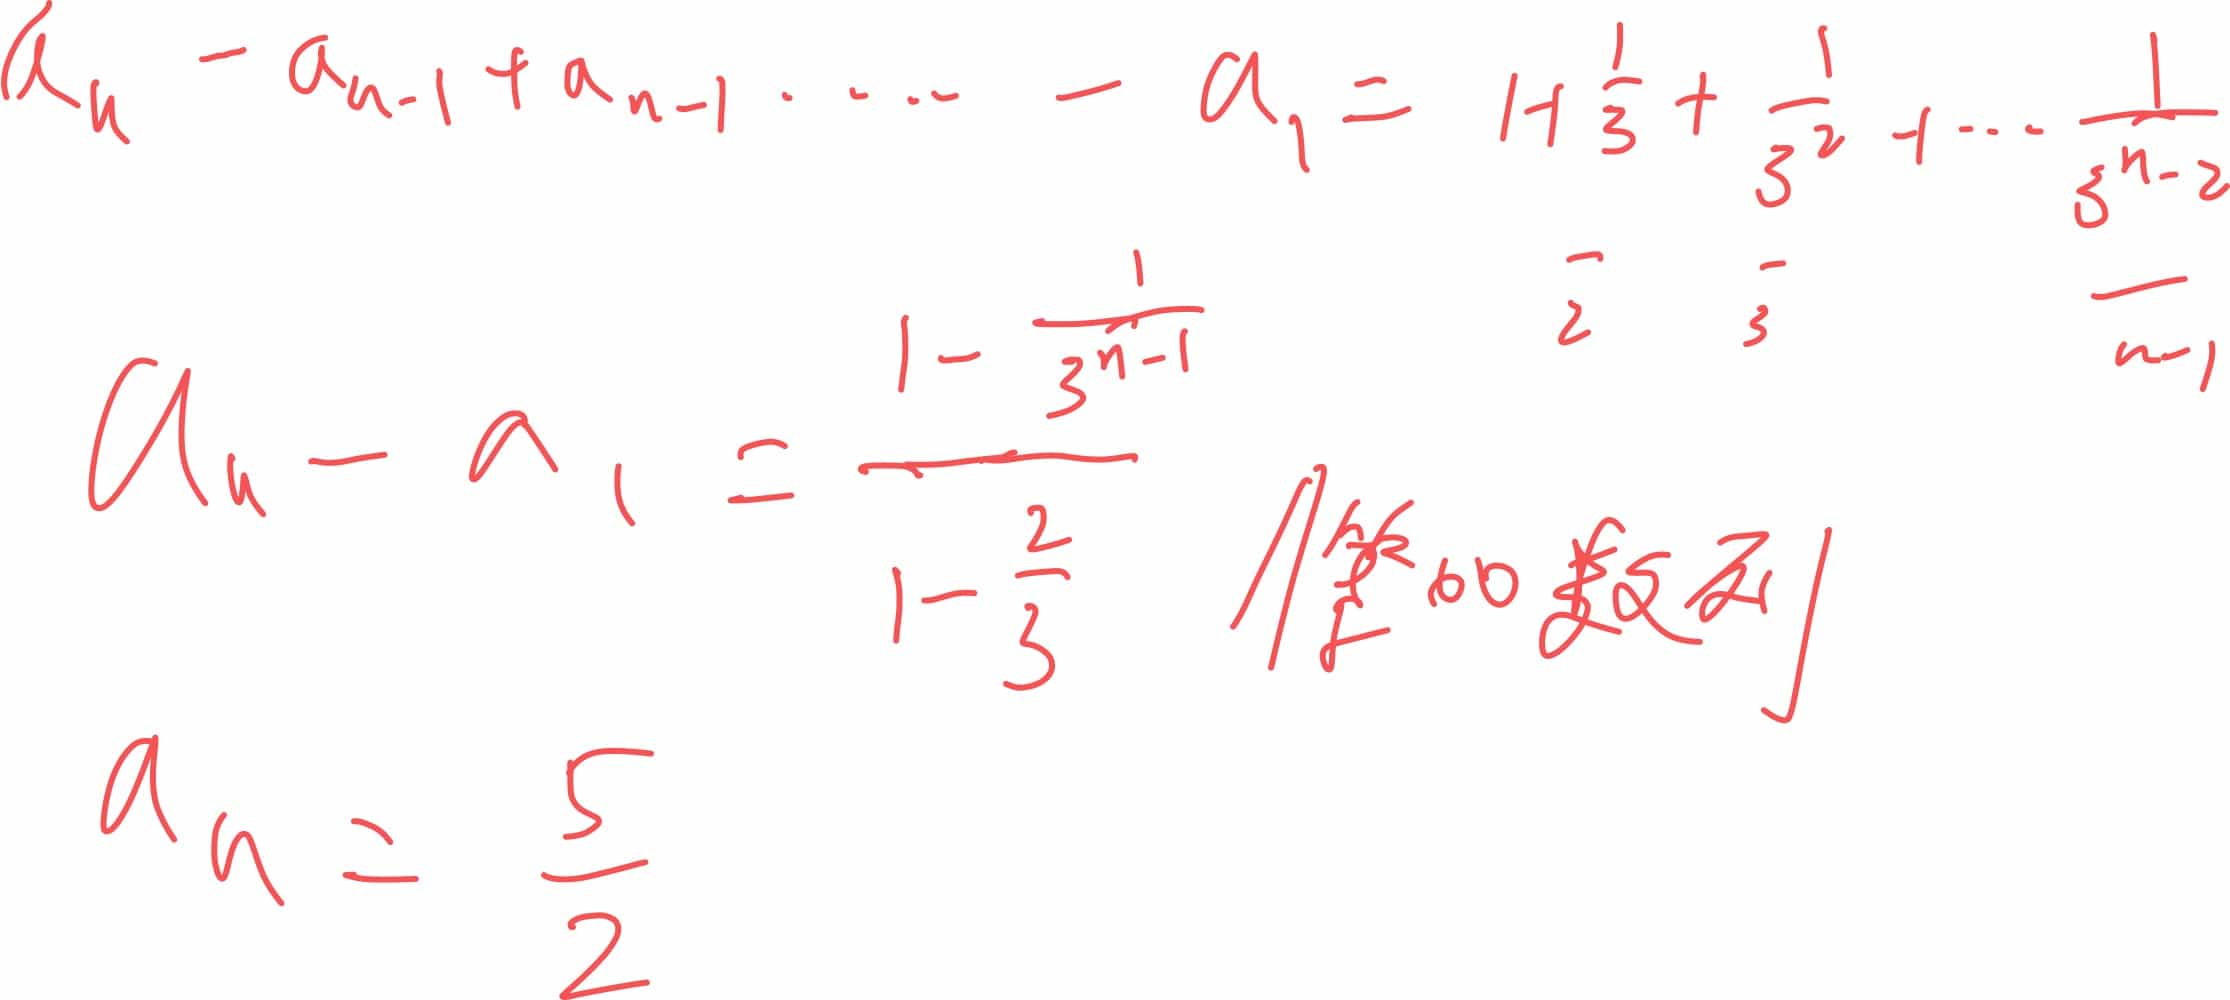 aₙ - aₙ₋₁ + aₙ₋₁ ····· - a₁ = 1 + 1/3 + 1/3² + ··· 1/3ⁿ⁻²
2 3 n-1
aₙ - a₁ = (1 - 1/3ⁿ⁻¹)/(1 - 2/3) 数列
aₙ = 5/2